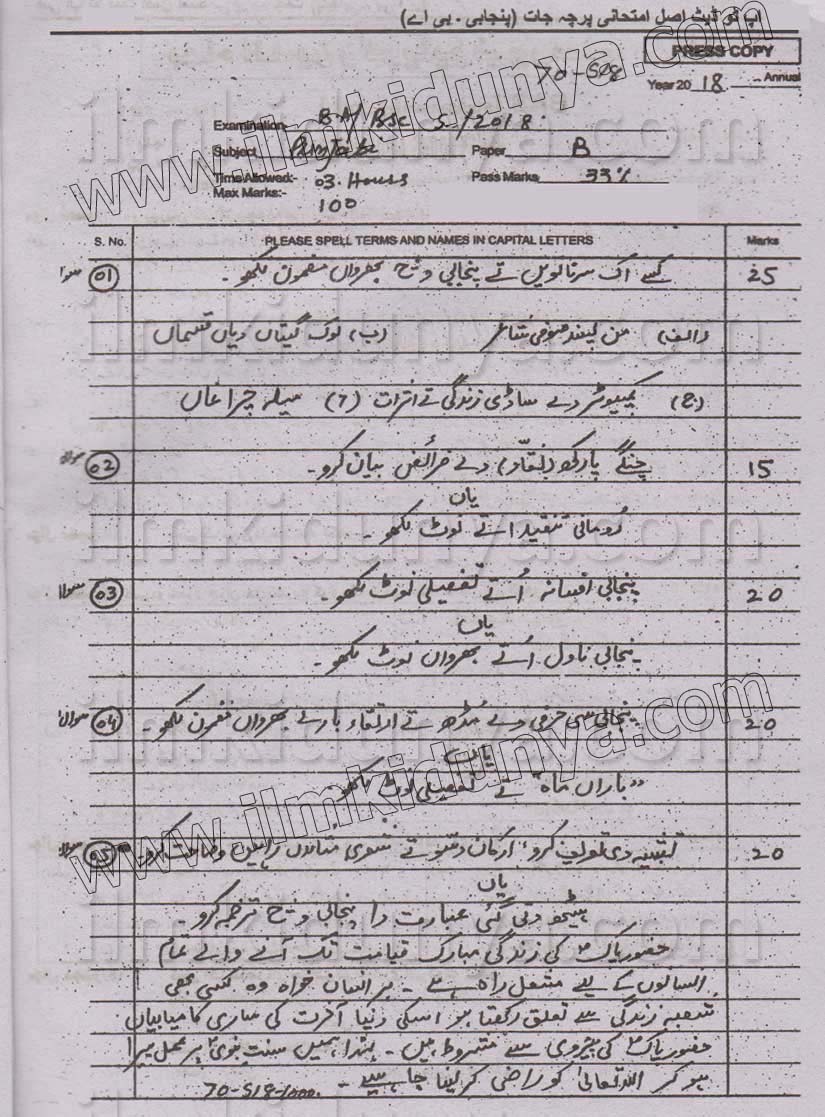 اپ ٹو ڈیٹ اصل امتحانی پرچہ جات (پنجابی ۔ بی اے)
PRESS COPY
70-S18
Year 2018 Annual
Examination:- B.A/BSc S/2018
Subject Punjabi Paper B
Time Allowed:- 03 Hours Pass Marks 33%
Max Marks:- 100
S. No. PLEASE SPELL TERMS AND NAMES IN CAPITAL LETTERS Marks
سوال 01 کسے اک سرنانویں تے پنجابی وِچ بھرواں مضمون لکھو ۔ 25
(الف) من پسند صوفی شاعر (ب) لوک گیتاں دیاں قسماں
(ج) کمپیوٹر دے ساڈی زندگی تے اثرات (د) میلہ چراغاں
سوال 02 چنگے پارکھ (نقاد) دے فرائض بیان کرو ۔ 15
یاں
رُومانی تنقید اُتے نوٹ لکھو ۔
سوال 03 پنجابی افسانہ اُتے تفصیلی نوٹ لکھو ۔ 20
یاں
پنجابی ناول اُتے بھرواں نوٹ لکھو ۔
سوال 04 پنجابی سی حرفی دے مُڈھ تے ارتقاء بارے بھرواں مضمون لکھو ۔ 20
یاں
"باراں ماہ" تے تفصیلی نوٹ لکھو
سوال 05 تشبیہ دی تعریف کرو، ارکان دسّو تے شعری مثالاں راہیں وضاحت کرو ۔ 20
یاں
ہیٹھ دتی گئی عبارت دا پنجابی وِچ ترجمہ کرو ۔
حضور پاکؐ کی زندگی مبارک قیامت تک آنے والے تمام
انسانوں کے لیے مشعل راہ ہے ۔ ہر انسان خواہ وہ کسی بھی
شعبہ زندگی سے تعلق رکھتا ہو اسکی دنیا آخرت کی ساری کامیابیاں
حضور پاکؐ کی پیروی سے مشروط ہیں ۔ لہٰذا ہمیں سنت نبویؐ پر عمل پیرا
ہو کر اللہ تعالیٰ کو راضی کر لینا چاہیے ۔
70-S18-1000.
www.ilmkidunya.com
www.ilmkidunya.com
ilmkidunya.com
ilmkidunya.com
ilmkidunya.com
ilmkidunya.com
ilmkidunya.com